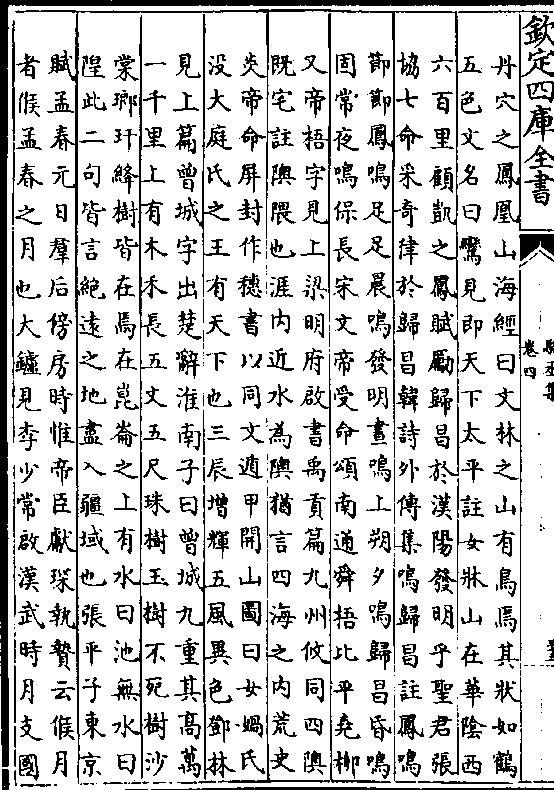 欽定四庫全書
卷四
丹穴之鳳凰山海經曰文林之山有鳥焉其狀如鶴
五色文名曰鸞見即天下太平註女牀山在華陰西
六百里顧凱之鳳賦勵歸昌於漢陽發明乎聖君張
協七命采奇律於歸昌韓詩外傳集鳴歸昌註鳳鳴
節節鳳鳴足足晨鳴發明晝鳴上朔夕鳴歸昌昏鳴
固常夜鳴保長宋文帝受命頌南通舜梧比平堯柳
又帝梧字見上梁明府啟書禹貢篇九州攸同四隩
既宅註隩隈也涯内近水為隩猶言四海之内荒史
炎帝命屏封作穗書以同文遁甲開山圖曰女媧氏
没大庭氏之王有天下也三辰增輝五風異色鄧林
見上篇曾城字出楚辭淮南子曰曾城九重其髙萬
一千里上有木禾長五丈五尺珠樹玉樹不死樹沙
棠瑯玕絳樹皆在焉在崑崙之上有水曰池無水曰
隍此二句皆言絶遠之地盡入疆域也張平子東京
賦孟春元日羣后傍房時惟帝臣獻琛執贄云候月
者候孟春之月也大鑪見李少常啟漢武時月支國